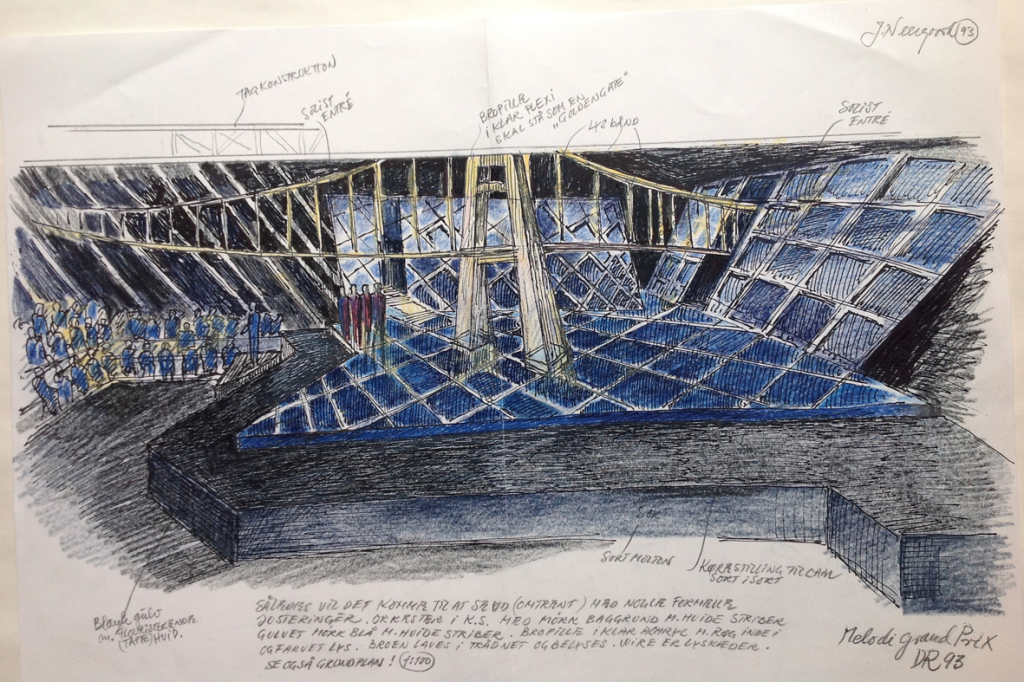 J. Neergaard 93
TAGKONSTRUKTION
SOLIST
ENTRÉ
BROPILLE
I KLAR PLEXI
SKAL STÅ SOM EN
"GOLDENGATE"
LYSBÅND
SOLIST
ENTRÉ
SORT MOLTON
SORT I SORT
Blank gulv
HVID.
SÅLEDES VIL DET KOMME TIL AT SE UD (OMTRENT) MED NOGLE FORMELLE
JUSTERINGER. ORKESTER I K.S. MED MÖRK BAGGRUND M. HVIDE STRIBER
GULVET MÖRK BLÅ M. HVIDE STRIBER. BROPILLE I KLAR ACHRYL M. RØG INDE I
OG FARVET LYS. BROEN LAVES I TRÅDNET OG BELYSES. WIRE ER LYSKÆDER.
SE OGSÅ GRUNDPLAN! 1:100
Melodi grand Prix
DR 93